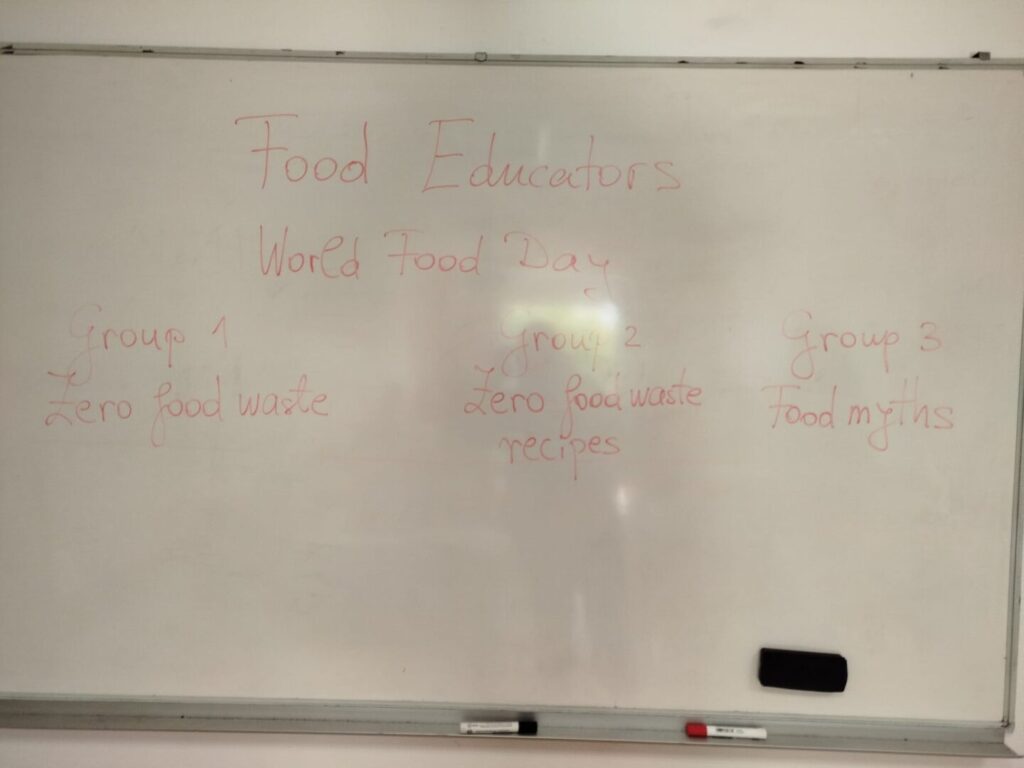 Food Educators
World Food Day
Group 1
Zero food waste
Group 2
Zero food waste
recipes
Group 3
Food myths